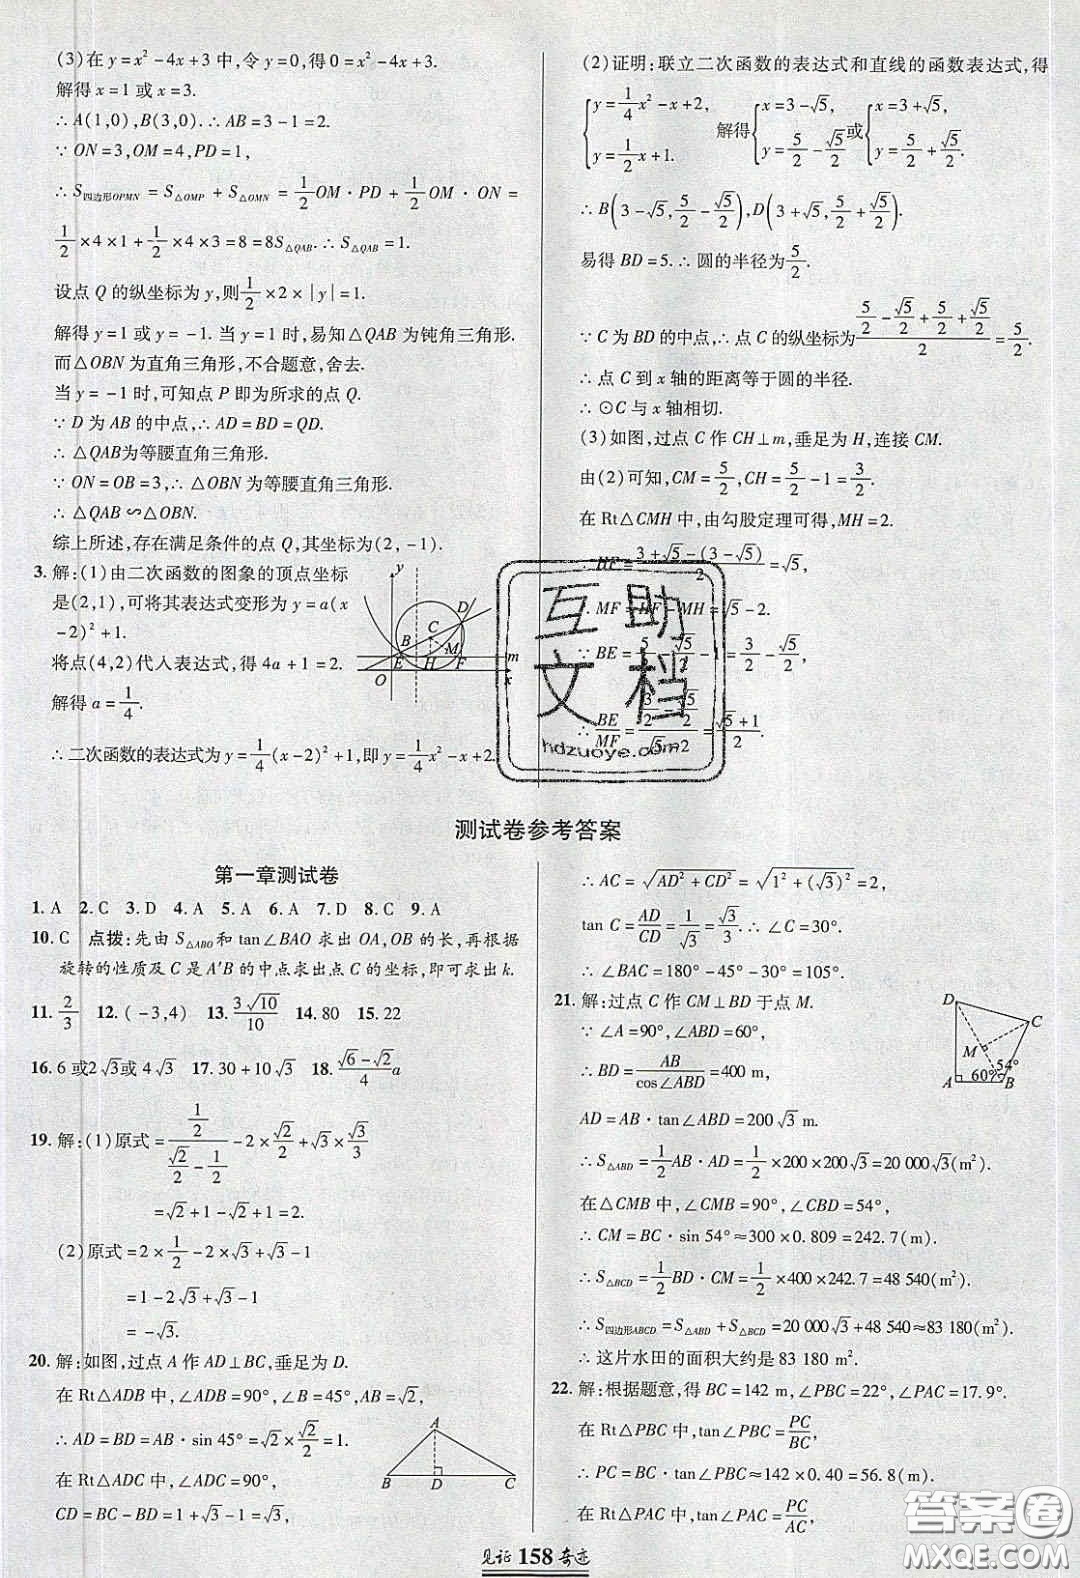 (3)在 y=x²-4x+3 中,令 y=0,得 0=x²-4x+3.
解得 x=1 或 x=3.
∴A(1,0),B(3,0).∴AB=3-1=2.
∵ON=3,OM=4,PD=1,
∴S四边形OPMN=S△OMP+S△OMN=1/2OM·PD+1/2OM·ON=
1/2×4×1+1/2×4×3=8=8S△QAB.∴S△QAB=1.
设点 Q 的纵坐标为 y,则1/2×2×|y|=1.
解得 y=1 或 y=-1. 当 y=1 时,易知△QAB 为钝角三角形.
而△OBN 为直角三角形,不合题意,舍去.
当 y=-1 时,可知点 P 即为所求的点 Q.
∵D 为 AB 的中点,∴AD=BD=QD.
∴△QAB为等腰直角三角形.
∵ON=OB=3,∴△OBN 为等腰直角三角形.
∴△QAB∽△OBN.
综上所述,存在满足条件的点 Q,其坐标为(2,-1).
3.解:(1)由二次函数的图象的顶点坐标
是(2,1),可将其表达式变形为 y=a(x
-2)²+1.
将点(4,2)代人表达式,得 4a+1=2.
解得 a=1/4.
y D B C M E H F m O x
∴二次函数的表达式为 y=1/4(x-2)²+1,即 y=1/4x²-x+2.
(2)证明:联立二次函数的表达式和直线的函数表达式,得
{y=1/4x²-x+2, y=1/2x+1. 解得{x=3-√5, y=5/2-√5/2 或{x=3+√5, y=5/2+√5/2.
∴B(3-√5,5/2-√5/2),D(3+√5,5/2+√5/2).
易得 BD=5.∴圆的半径为5/2.
∵C 为 BD 的中点,∴点 C 的纵坐标为(5/2-√5/2+5/2+√5/2)/2=5/2.
∴点 C 到 x 轴的距离等于圆的半径.
∴⊙C 与 x 轴相切.
(3)如图,过点 C 作 CH⊥m,垂足为 H,连接 CM.
由(2)可知,CM=5/2,CH=5/2-1=3/2.
在 Rt△CMH 中,由勾股定理可得,MH=2.
∴HF=(3+√5-(3-√5))/2=√5,
∴MF=HF-MH=√5-2.
∵BE=5/2-√5/2-1=3/2-√5/2,
∴BE/MF=(3/2-√5/2)/(√5-2)=(√5+1)/2.
互助
文档
hdzuoye.com
测试卷参考答案
第一章测试卷
1. A 2. C 3. D 4. A 5. A 6. A 7. D 8. C 9. A
10. C 点拨:先由 S△ABO和 tan∠BAO 求出 OA,OB 的长,再根据
旋转的性质及 C 是 A'B 的中点求出点 C 的坐标,即可求出 k.
11. 2/3 12. (-3,4) 13. 3√10/10 14. 80 15. 22
16. 6 或2√3或 4√3 17. 10√3+10 18. (√6-√2)/4 a
19. 解:(1)原式=(1/2)/(√2/2-1/2)-2×√2/2+√3×√3/3
=√2+1-√2+1=2.
(2)原式=2×1/2-2×√3+√3-1
=1-2√3+√3-1
=-√3.
20. 解:如图,过点 A 作 AD⊥BC,垂足为 D.
在 Rt△ADB 中,∠ADB=90°,∠B=45°,AB=√2,
∴AD=BD=AB·sin 45°=√2×√2/2=1.
在 Rt△ADC 中,∠ADC=90°,
CD=BC-BD=1+√3-1=√3,
A B D C
∴AC=√(AD²+CD²)=√(1²+(√3)²)=2,
tan C=AD/CD=1/√3=√3/3.∴∠C=30°.
∴∠BAC=180°-45°-30°=105°.
21. 解:过点 C 作 CM⊥BD 于点 M.
∵∠A=90°,∠ABD=60°,
∴BD=AB/cos∠ABD=400 m,
AD=AB·tan∠ABD=200√3 m.
D C M 54° 60° A B
∴S△ABD=1/2AB·AD=1/2×200×200√3=20 000√3(m²).
在△CMB 中,∠CMB=90°,∠CBD=54°,
∴CM=BC·sin 54°≈300×0.809=242.7(m).
∴S△BCD=1/2BD·CM≈1/2×400×242.7=48 540(m²).
∴S四边形ABCD=S△ABD+S△BCD=20 000√3+48 540≈83 180(m²).
∴这片水田的面积大约是 83 180 m².
22. 解:根据题意,得 BC=142 m,∠PBC=22°,∠PAC=17.9°.
在 Rt△PBC 中,tan∠PBC=PC/BC,
∴PC=BC·tan∠PBC≈142×0.40=56.8(m).
在 Rt△PAC 中,tan∠PAC=PC/AC,
见证 158 奇迹
答案圈
MXQE.COM